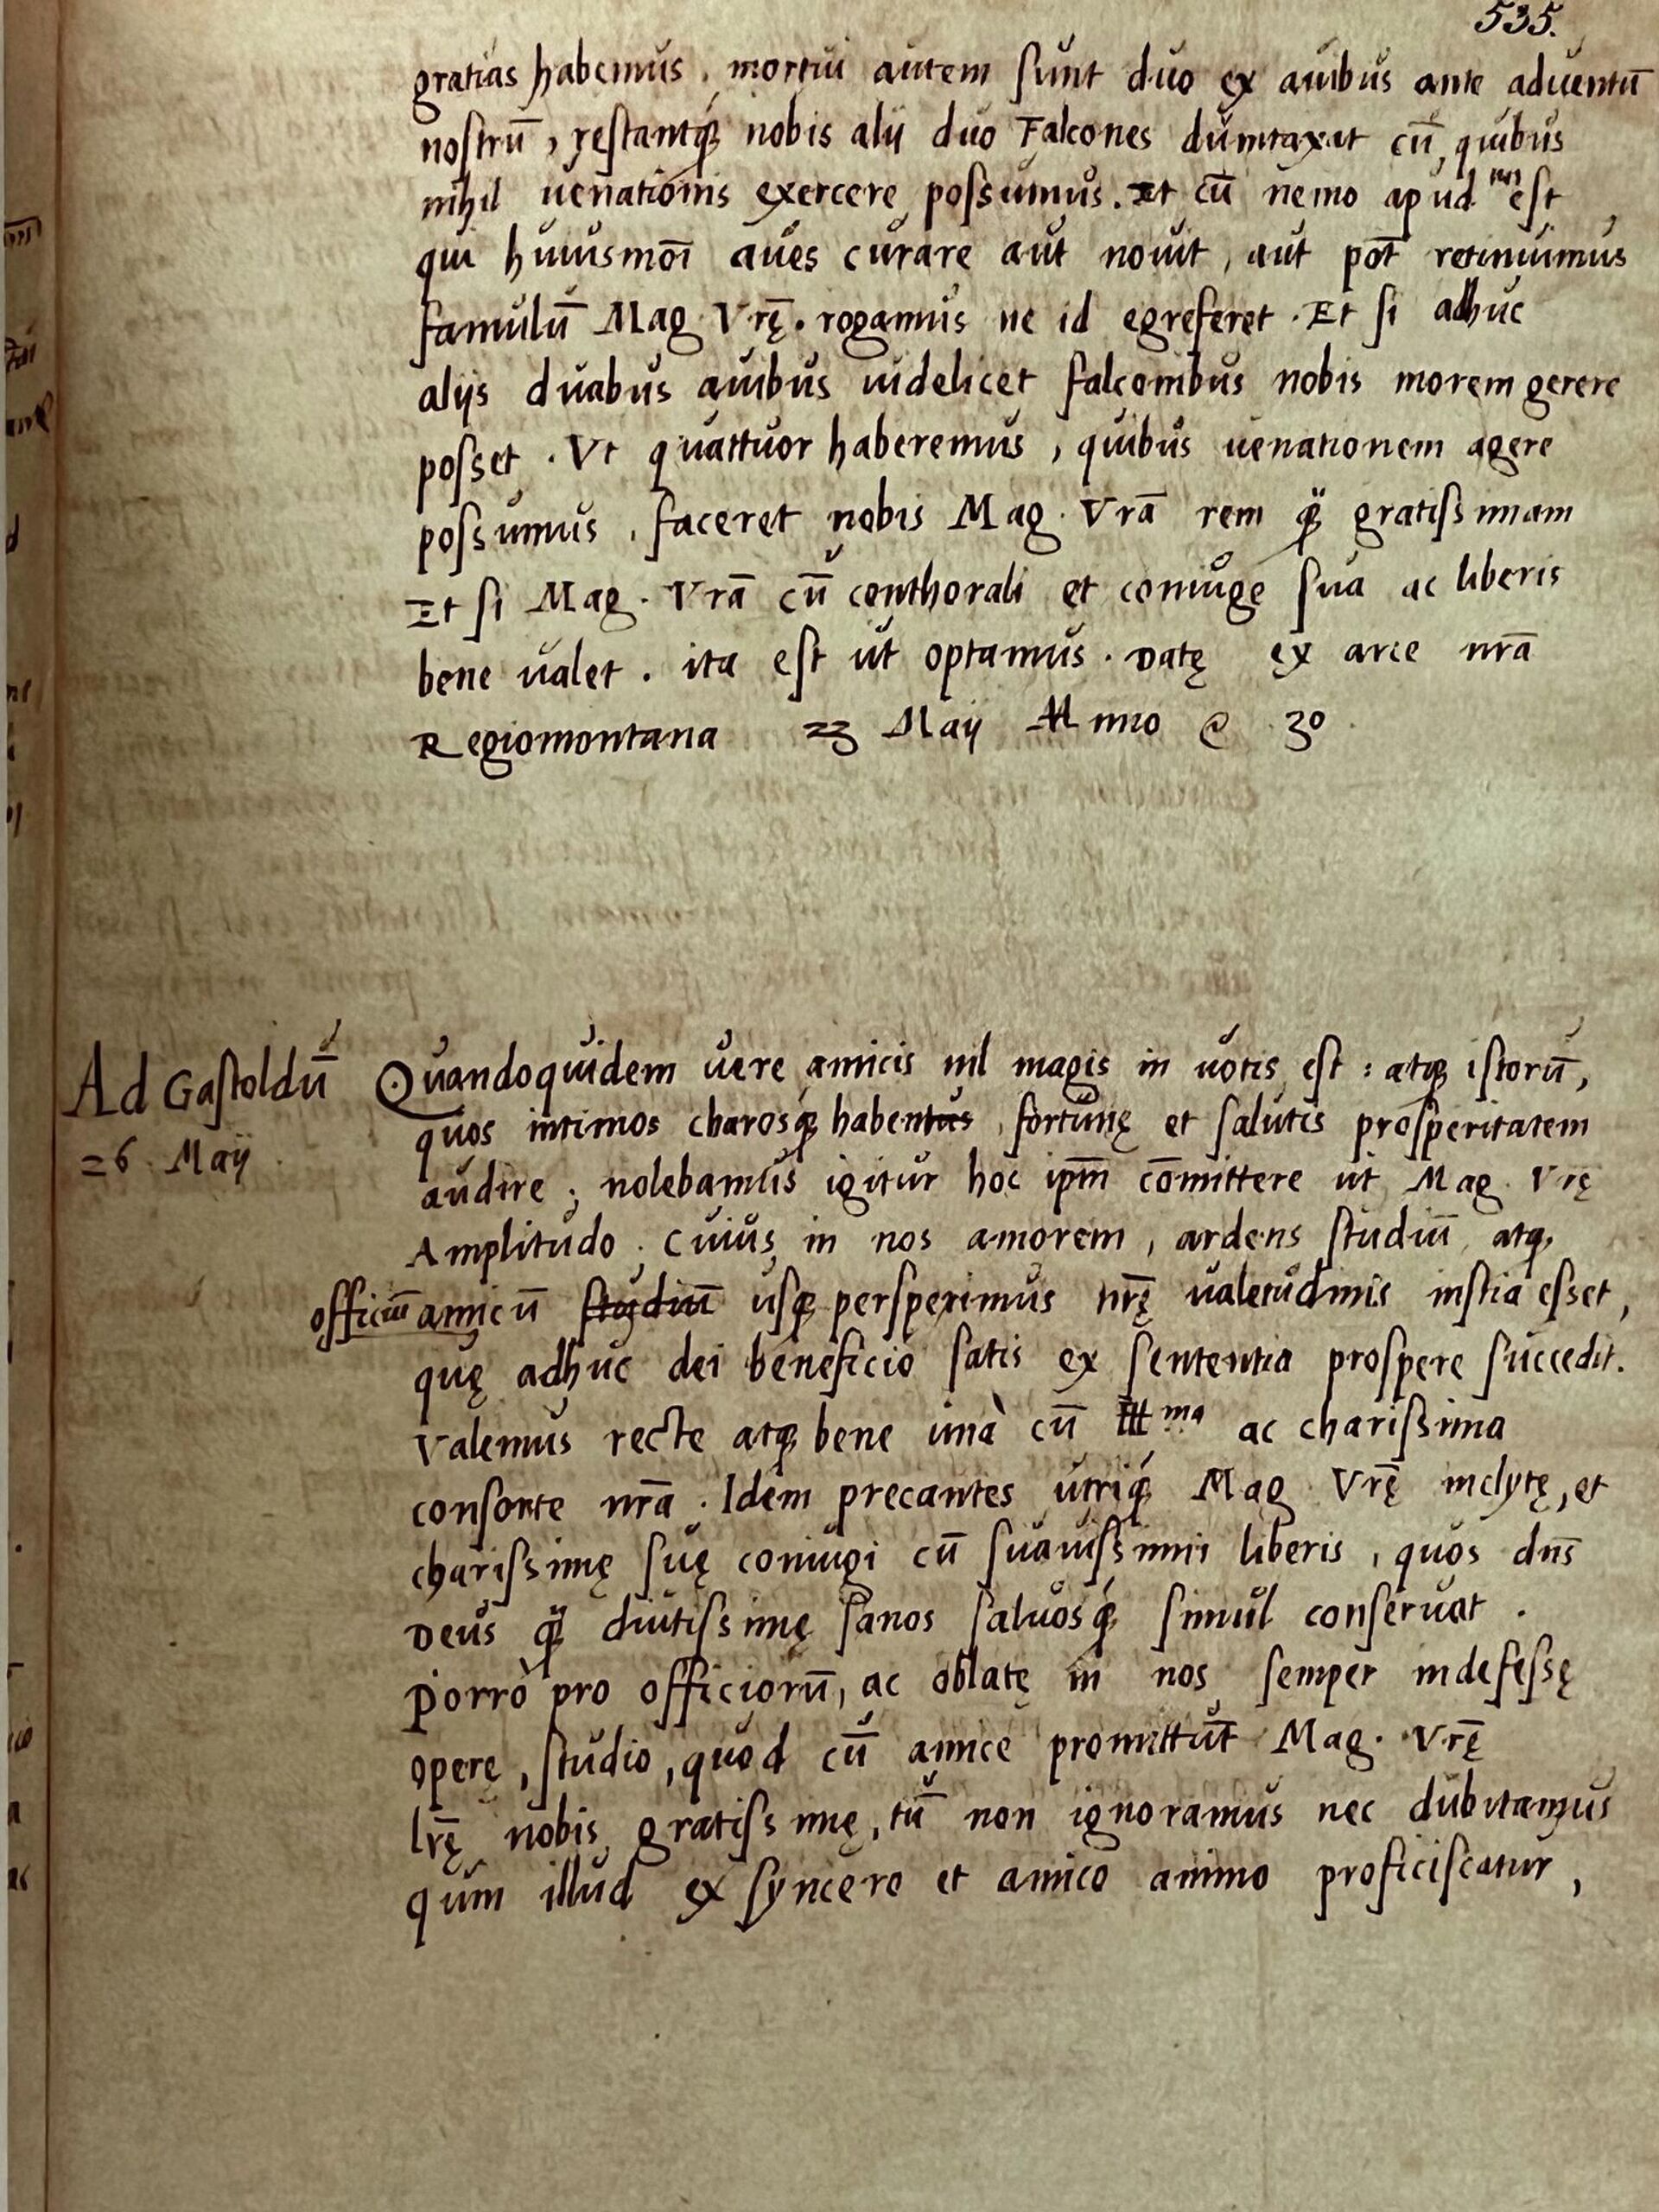 535.
gratias habemus, mortui autem sunt duo ex auibus ante aduentū
nostrū, restantq́ꝫ nobis alij duo Falcones dumtaxat cū, quibus
nihil uenationis exercere possumus. Et cū nemo apud nos est
qui huiusmōi aues curare aut nouit, aut pōt retinuimus
famulū Mag. Vrę̄. rogamus ne id egreferet. Et si adhuc
alijs duabus auibus uidelicet falconibus nobis morem gerere
posset. Vt quattuor haberemus, quibus uenationem agere
possumus, faceret nobis Mag. Vrā rem gratissimam
Et si Mag. Vrā cū conthorali et coniuge sua ac liberis
bene ualet. ita est ut optamus. Datę ex arce nrā
Regiomontana 23 Maij Anno 30
Ad Gastoldū
26 Maij
Quandoquidem uere amicis nil magis in uotis est: atqꝫ istorū,
quos intimos charosq́ꝫ habentus, fortunę et salutis prosperitatem
audire; nolebamus igitur hoc ipm̄ cōmittere ut Mag. Vrę
Amplitudo. Cuius in nos amorem, ardens studiū atqꝫ
officiū amicū studiū usqꝫ perspeximus nrę̄ ualetudinis instia esset,
quę adhuc dei beneficio satis ex sententia prospere succedit.
Valemus recte atqꝫ bene unà cū Illma ac charissima
consorte nrā. Idem precantes utriq́ꝫ Mag. Vrę̄ inclytę, et
charissimę suę coniugi cū suauissimi liberis, quos dn̄s
Deus diutissimę sanos saluosq́ꝫ simul conseruat.
Porrò pro officiorū, ac oblatę in nos semper indefessę
operę, studio, quod cū amice promittūt Mag. Vrę̄
lrę̄ nobis gratissimę, tū non ignoramus nec dubitamus
quin illud ex syncero et amico animo proficiscatur,